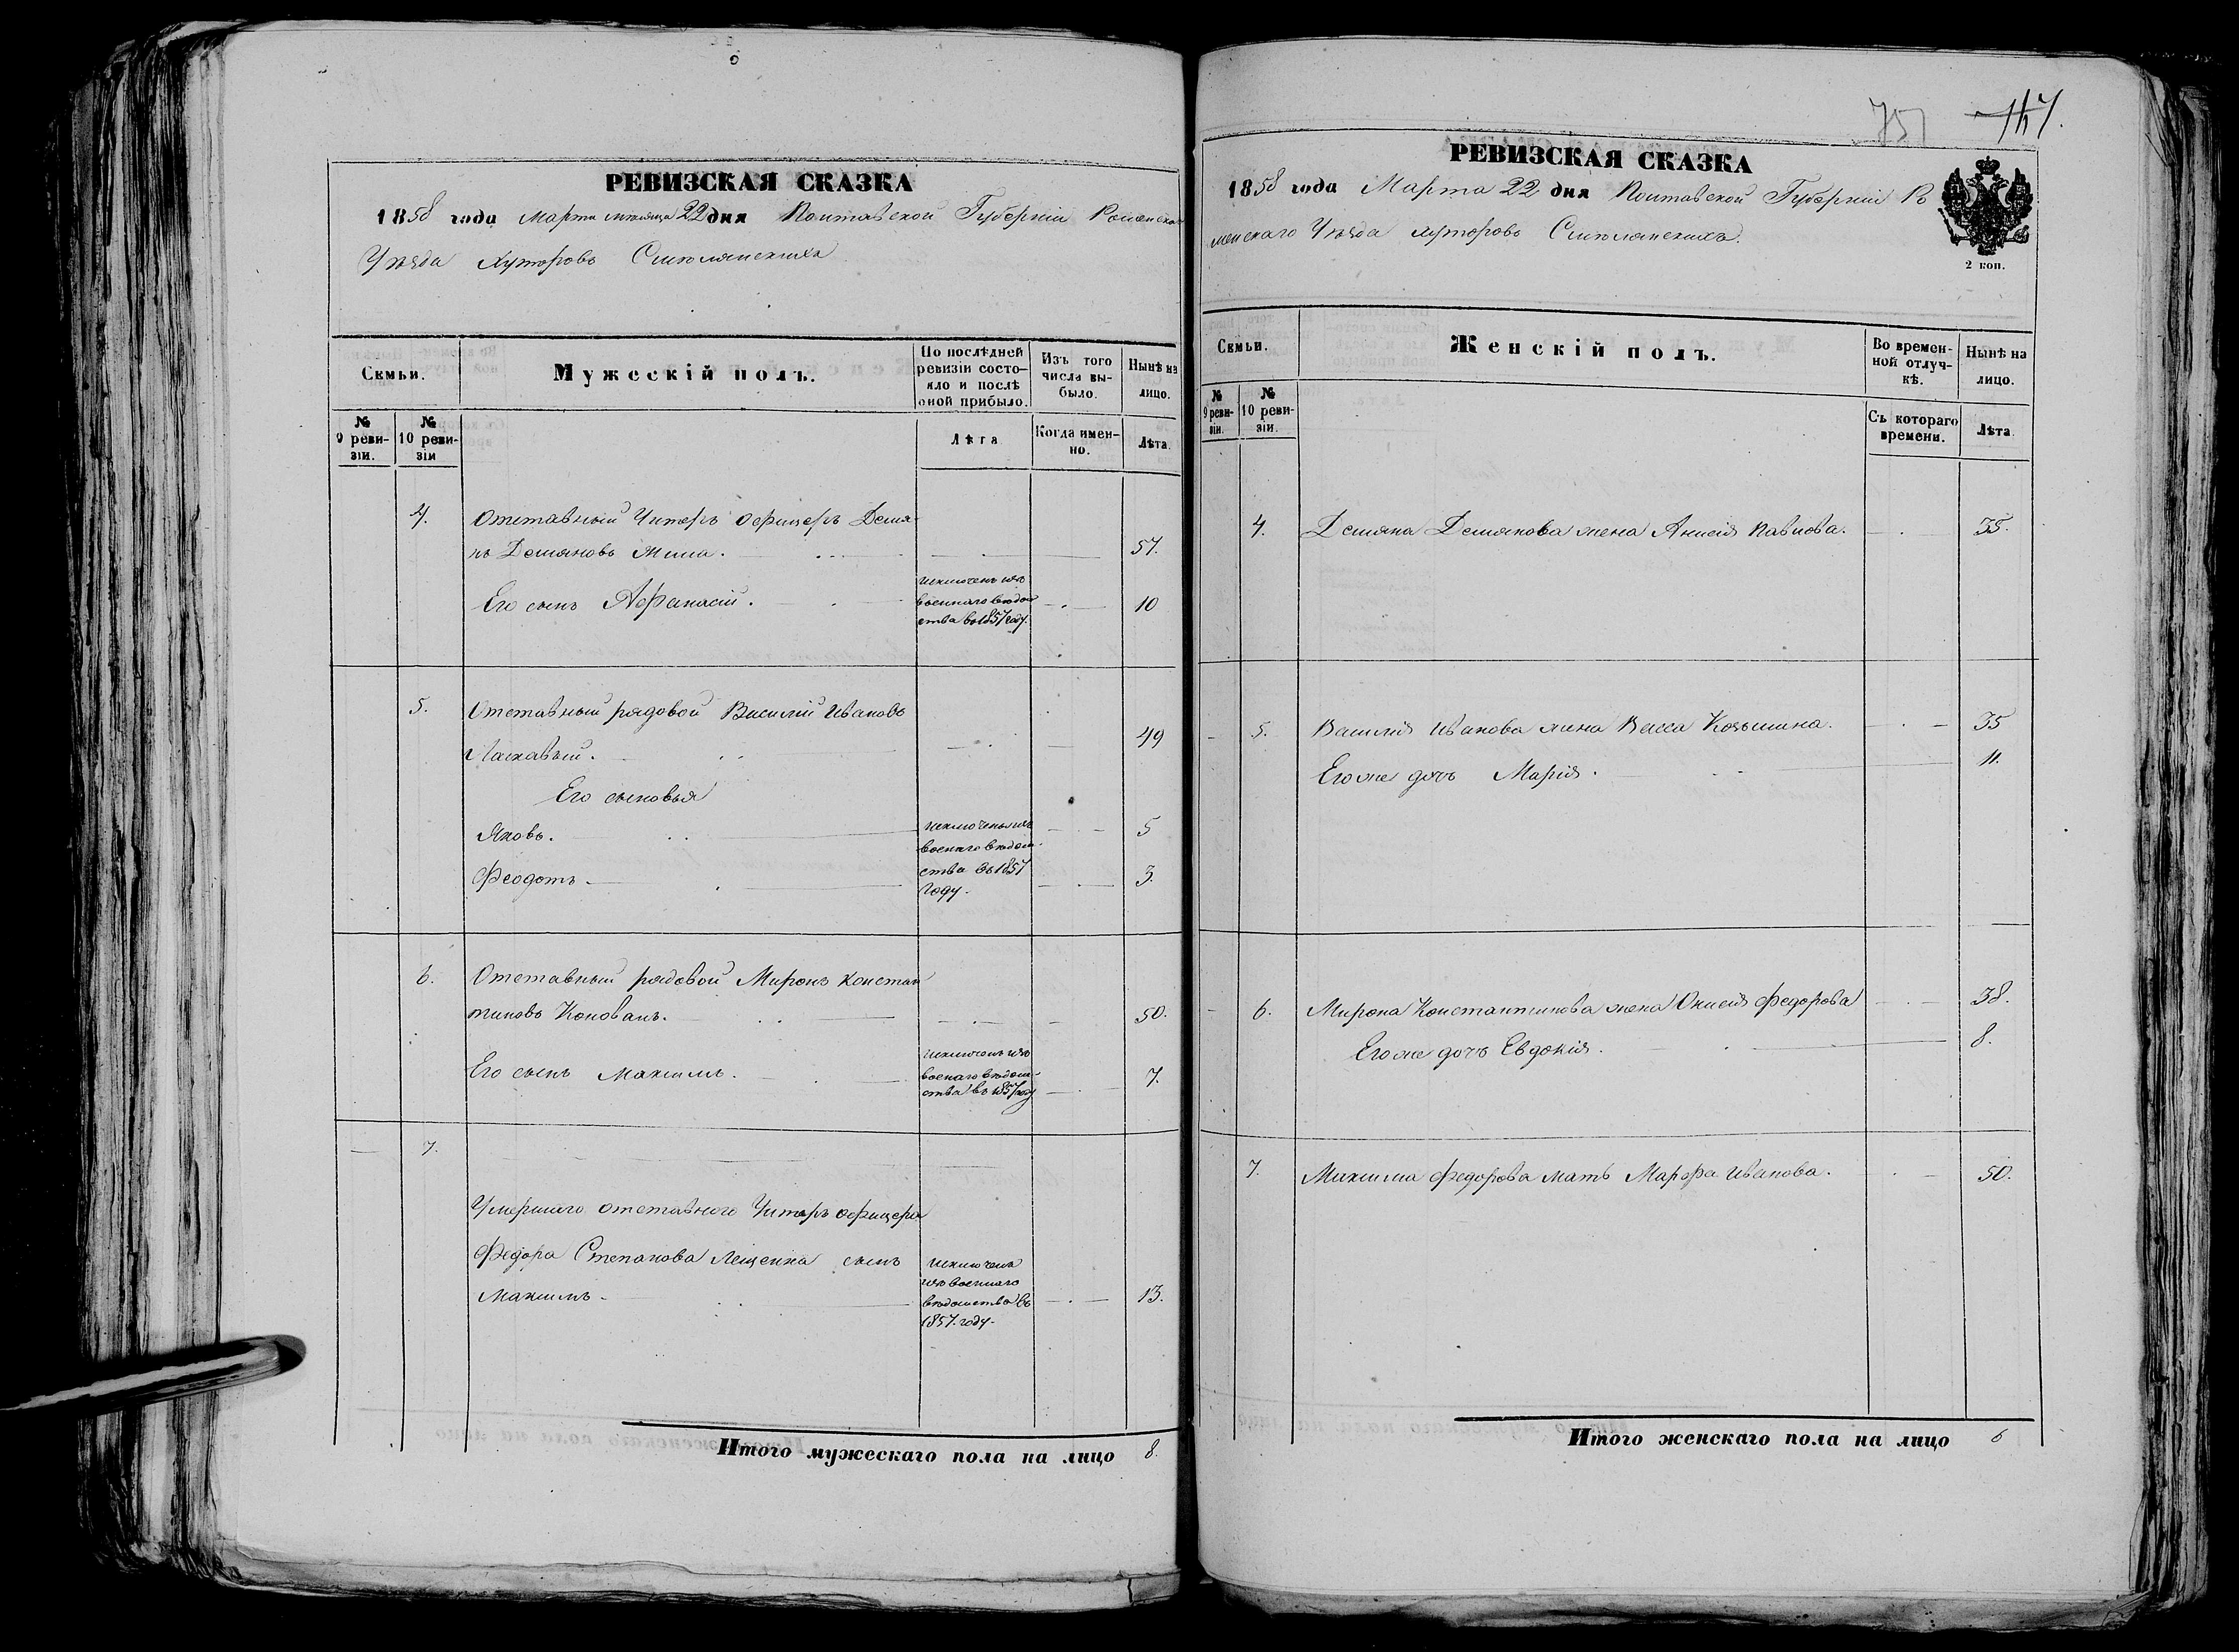 РЕВИЗСКАЯ СКАЗКА
1858 года Марта месяца 22 дня Полтавской Губерніи Роменска
Уѣзда Хуторовъ Смѣлянскихъ
Семьи.
Мужескій полъ.
По послѣдней ревизіи состояло и послѣ оной прибыло.
Изъ того числа выбыло.
Нынѣ на лицо.
№ 9 ревизіи.
№ 10 ревизіи
Лѣта
Когда именно.
Лѣта.
4. Отставный Унтеръ Офицеръ Демя-
нъ Демяновъ 57.
Его сынъ Афанасій. исключенъ изъ военнаго вѣдомства въ 1857 году. 10
5. Отставный рядовой Василій Ивановъ
Ласкавый. 49
Его сыновья
Яковъ. исключены изъ военнаго вѣдом- 5
Феодотъ ства въ 1857 году. 3.
6. Отставный рядовой Миронъ Констан
тиновъ Коновалъ. 50.
Его сынъ Максимъ. исключенъ изъ военнаго вѣдомства въ 1857 году 7.
7.
Умершаго отставного Унтеръ офицера
Федора Степанова Лещенка сынъ
Максимъ исключенъ изъ военнаго вѣдомства въ 1857. году. 13.
Итого мужескаго пола на лицо 8.
751
РЕВИЗСКАЯ СКАЗКА
1858 года Марта 22 дня Полтавской Губерніи Ро
менскаго Уѣзда хуторовъ Смѣлянскихъ.
2 коп.
Семьи.
Женскій полъ.
Во временной отлучкѣ.
Нынѣ на лицо.
№ 9 ревизіи.
№ 10 ревизіи.
Съ котораго времени.
Лѣта.
4. Демяна Демянова жена Анисія Павлова. 35.
5. Василія Иванова жена Васса Козьмина. 35
Его же дочь Марія. 11.
6. Мирона Константинова жена Оксенія Федорова 38.
Его же дочь Евдокія. 8.
7. Максима Федорова мать Марфа Иванова. 50.
Итого женскаго пола на лицо 6